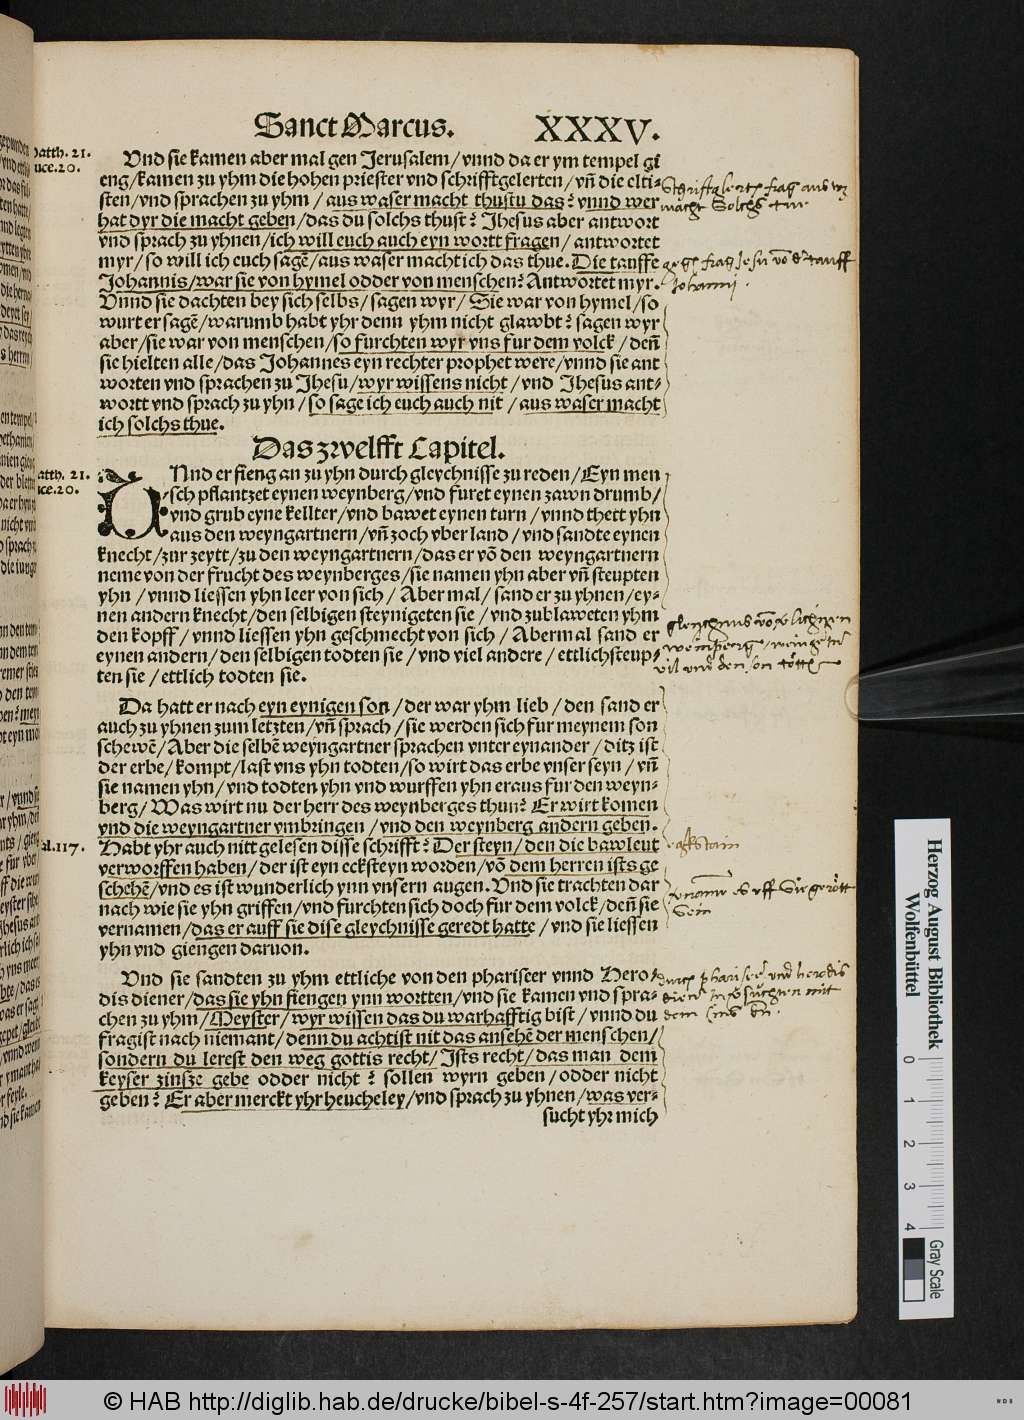 Sanct Marcus. XXXV.
Matth. 21.
Luce. 20.
Vnd sie kamen aber mal gen Jerusalem/ vnnd da er ym tempel gi
eng/ kamen zu yhm die hohen priester vnd schrifftgelerten/ vñ die elti⸗
sten/ vnd sprachen zu yhm/ aus waser macht thustu das? vnnd wer
hat dyr die macht geben/ das du solchs thust? Jhesus aber antwort
vnd sprach zu yhnen/ ich will euch auch eyn wortt fragen/ antwortet
myr/ so will ich euch sagẽ/ aus waser macht ich das thue. Die tauffe
Johannis/ war sie von hymel odder von menschen? Antwortet myr.
Vnnd sie dachten bey sich selbs/ sagen wyr/ Sie war von hymel/ so
wurt er sagẽ/ warumb habt yhr denn yhm nicht glawbt? sagen wyr
aber/ sie war von menschen/ so furchten wyr vns fur dem volck/ deñ
sie hielten alle/ das Johannes eyn rechter prophet were/ vnnd sie ant
worten vnd sprachen zu Jhesu/ wyr wissens nicht/ vnd Jhesus ant⸗
wortt vnd sprach zu yhn/ so sage ich euch auch nit/ aus waser macht
ich solchs thue.
Das zwelfft Capitel.
Matth. 21.
Luce. 20.
VNnd er fieng an zu yhn durch gleychnisse zu reden/ Eyn men
sch pflantzet eynen weynberg/ vnd furet eynen zawn drumb/
vnd grub eyne kellter/ vnd bawet eynen turn/ vnnd thett yhn
aus den weyngartnern/ vñ zoch vber land/ vnd sandte eynen
knecht/ zur zeytt/ zu den weyngartnern/ das er võ den weyngartnern
neme von der frucht des weynberges/ sie namen yhn aber vñ steupten
yhn/ vnnd liessen yhn leer von sich/ Aber mal/ sand er zu yhnen/ ey⸗
nen andern knecht/ den selbigen steynigeten sie/ vnd zublaweten yhm
den kopff/ vnnd liessen yhn geschmecht von sich/ Abermal sand er
eynen andern/ den selbigen todten sie/ vnd viel andere/ ettlich steup⸗
ten sie/ ettlich todten sie.
Da hatt er nach eyn eynigen son/ der war yhm lieb/ den sand er
auch zu yhnen zum letzten/ vñ sprach/ sie werden sich fur meynem son
schewẽ/ Aber die selbẽ weyngartner sprachen vnter eynander/ ditz ist
der erbe/ kompt/ last vns yhn todten/ so wirt das erbe vnser seyn/ vñ
sie namen yhn/ vnd todten yhn vnd wurffen yhn eraus fur den weyn⸗
berg/ Was wirt nu der herr des weynberges thun? Er wirt komen
vnd die weyngartner vmbringen/ vnd den weynberg andern geben.
Habt yhr auch nitt gelesen disse schrifft? Der steyn/ den die bawleut
verworffen haben/ der ist eyn ecksteyn worden/ võ dem herren ists ge
schehẽ/ vnd es ist wunderlich ynn vnsern augen. Vnd sie trachten dar
nach wie sie yhn griffen/ vnd furchten sich doch fur dem volck/ deñ sie
vernamen/ das er auff sie dise gleychnisse geredt hatte/ vnd sie liessen
yhn vnd giengen daruon.
Vnd sie sandten zu yhm ettliche von den phariseer vnnd Hero⸗
dis diener/ das sie yhn fiengen ynn wortten/ vnd sie kamen vnd spra⸗
chen zu yhm/ Meyster/ wyr wissen das du warhafftig bist/ vnnd du
fragist nach niemant/ denn du achtist nit das ansehẽ der menschen/
sondern du lerest den weg gottis recht/ Ists recht/ das man dem
keyser zinsze gebe odder nicht? sollen wyrn geben/ odder nicht
geben? Er aber merckt yhr heucheley/ vnd sprach zu yhnen/ was ver⸗
sucht yhr mich
al. 117.
Herzog August Bibliothek
Wolfenbüttel
0 1 2 3 4
Gray Scale
© HAB http://diglib.hab.de/drucke/bibel-s-4f-257/start.htm?image=00081